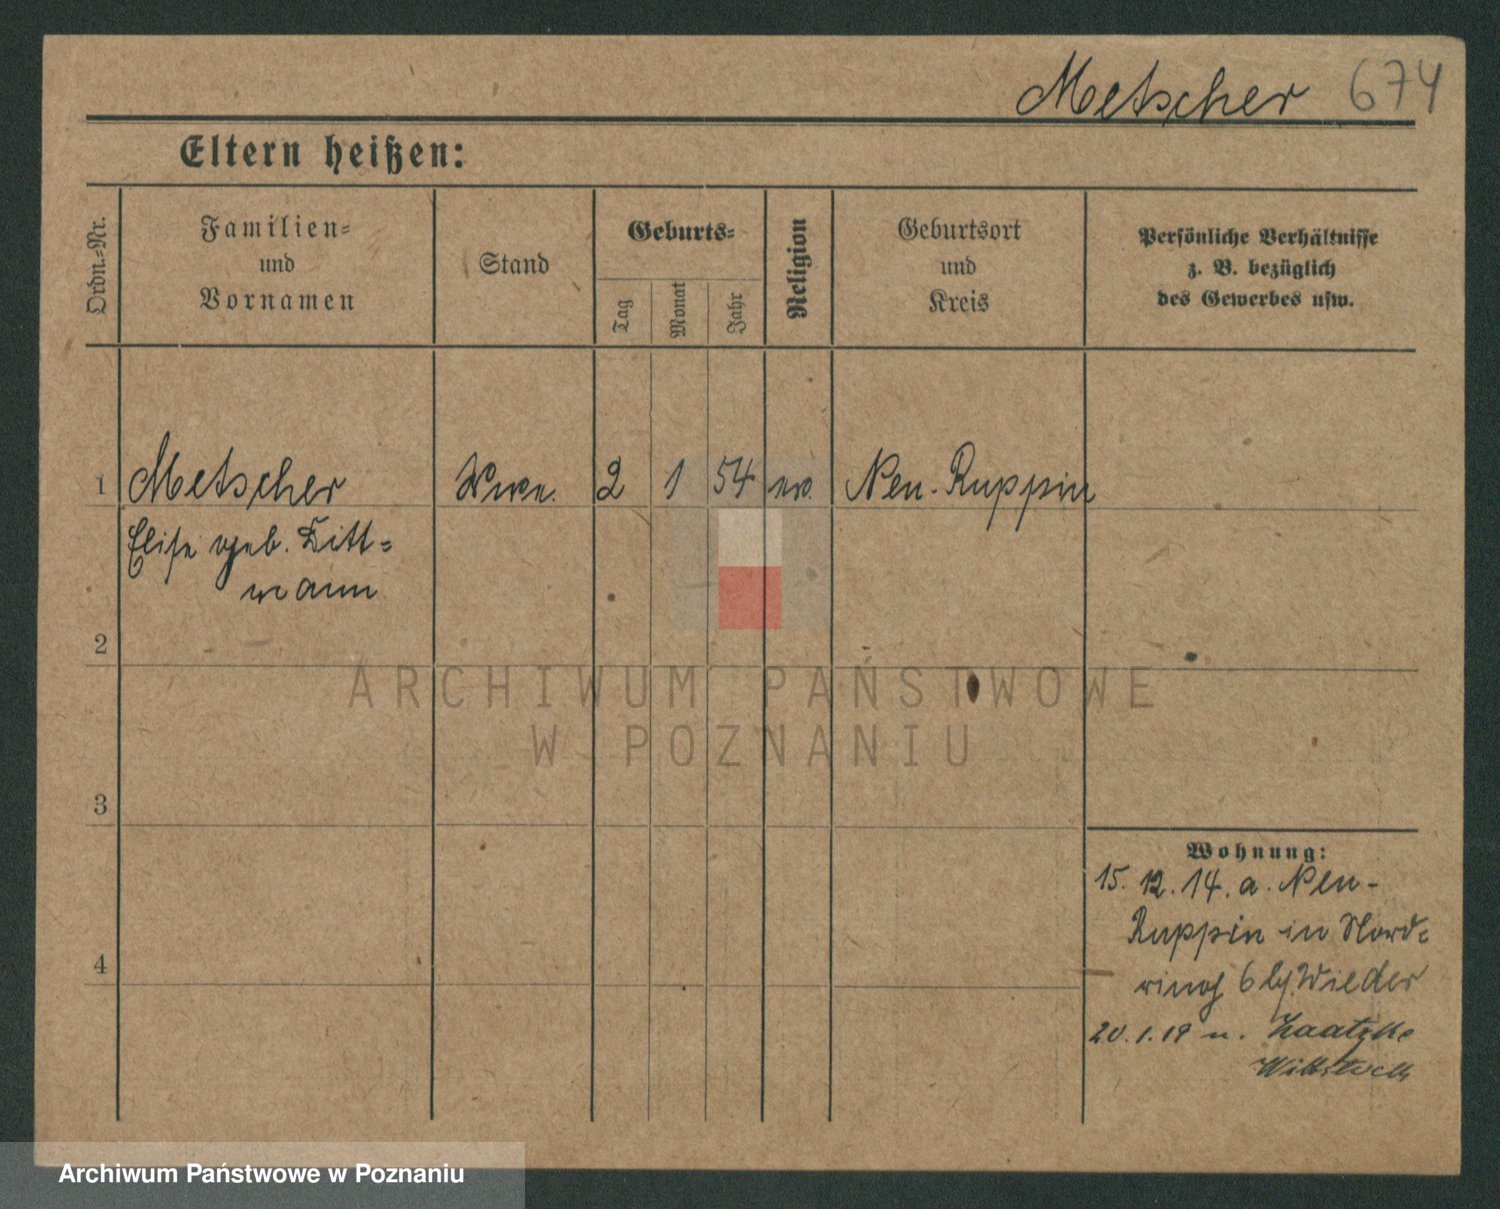 Metscher 674
Eltern heißen:
Ordn.-Nr.
Familien-
und
Vornamen
Stand
Geburts-
Tag
Monat
Jahr
Religion
Geburtsort
und
Kreis
Persönliche Verhältnisse
z. B. bezüglich
des Gewerbes usw.
1 Metscher Wwe. 2 1 54 ev. Neu-Ruppin
Elise geb. Ditt=
mann
2
3
4
Wohnung:
15. 12. 14. a. Neu-
Ruppin in Nord=
ring 6 bei Wieder
20.1.19 n. Zaatzke
Wittstock
ARCHIWUM PAŃSTWOWE
W POZNANIU
Archiwum Państwowe w Poznaniu